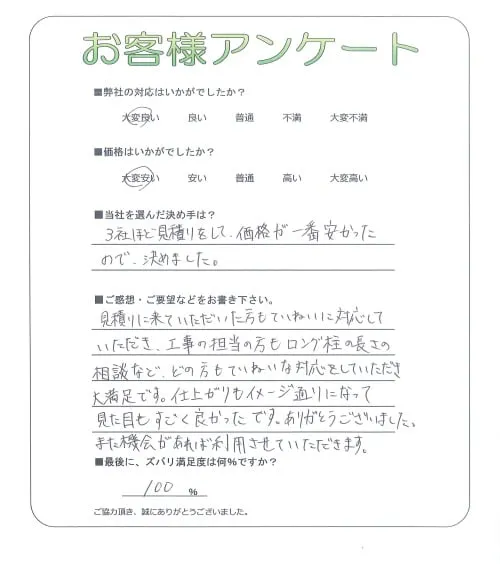 お客様アンケート
■弊社の対応はいかがでしたか？
大変良い 良い 普通 不満 大変不満
■価格はいかがでしたか？
大変安い 安い 普通 高い 大変高い
■当社を選んだ決め手は？
3社ほど見積りをして、価格が一番安かった
ので、決めました。
■ご感想・ご要望などをお書き下さい。
見積りに来ていただいた方もていねいに対応して
いただき、工事の担当の方もロング柱の長さの
相談など、どの方もていねいな対応をしていただき
大満足です。仕上がりもイメージ通りになって
見た目もすごく良かったです。ありがとうございました。
また機会があれば利用させていただきます。
■最後に、ズバリ満足度は何%ですか？
100 %
ご協力頂き、誠にありがとうございました。